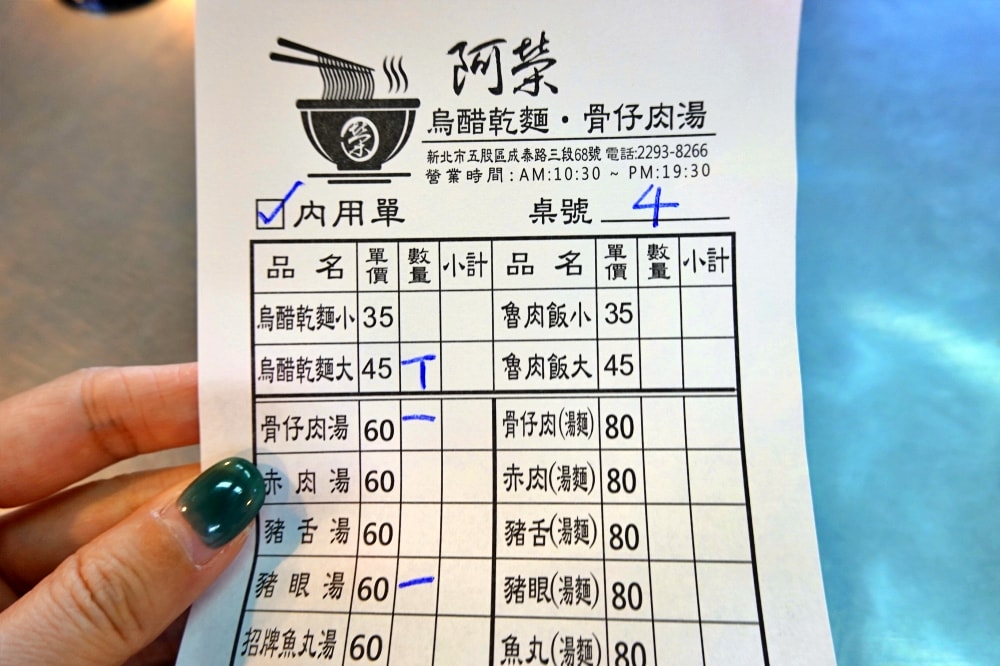 阿榮
榮
烏醋乾麵・骨仔肉湯
新北市五股區成泰路三段68號 電話:2293-8266
營業時間:AM:10:30 ~ PM:19:30
內用單 桌號 4
品名 單價 數量 小計 品名 單價 數量 小計
烏醋乾麵小 35 魯肉飯小 35
烏醋乾麵大 45 丅 魯肉飯大 45
骨仔肉湯 60 一 骨仔肉(湯麵) 80
赤肉湯 60 赤肉(湯麵) 80
豬舌湯 60 豬舌(湯麵) 80
豬眼湯 60 一 豬眼(湯麵) 80
招牌魚丸湯 60 魚丸(湯麵) 80